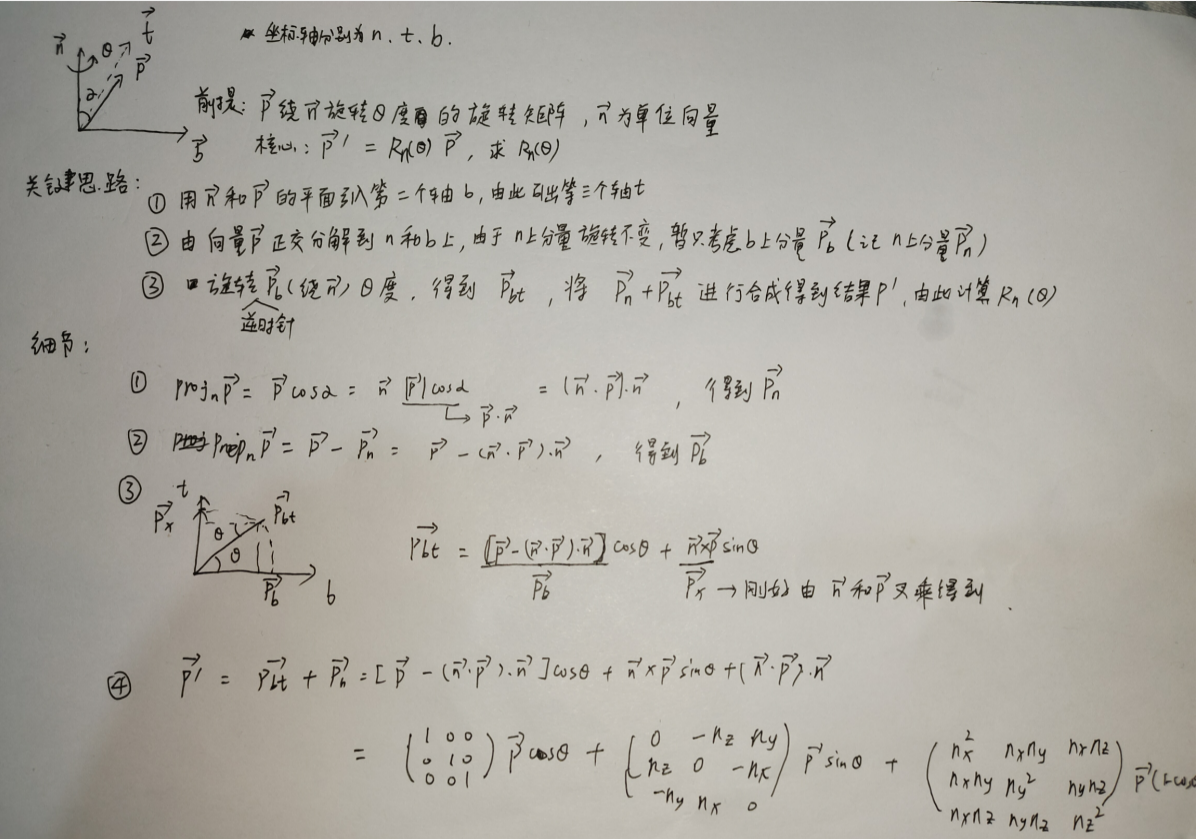 n⃗ θ t⃗
α p⃗
b⃗
* 坐标轴分别为 n、t、b.
前提: p⃗ 绕 n⃗ 旋转 θ 度 的旋转矩阵, n⃗ 为单位向量
核心: p⃗' = Rn(θ) p⃗, 求 Rn(θ)
关键思路:
① 用 n⃗ 和 p⃗ 的平面引入第二个轴 b, 由此引出第三个轴 t
② 由向量 p⃗ 正交分解到 n 和 b 上, 由于 n 上分量旋转不变, 暂只考虑 b 上分量 p⃗b (记 n 上分量 p⃗n)
③ 旋转 p⃗b (绕 n⃗) θ 度, 得到 p⃗bt, 将 p⃗n + p⃗bt 进行合成得到结果 p', 由此计算 Rn(θ)
逆时针
细节:
① projn p⃗ = p⃗ cosα = n⃗ |p⃗| cosα = (n⃗·p⃗)·n⃗, 得到 p⃗n
↳ p⃗·n⃗
② prepn p⃗ = p⃗ - p⃗n = p⃗ - (n⃗·p⃗)·n⃗, 得到 p⃗b
③ t
p⃗x θ p⃗bt
θ
p⃗b b
p⃗bt = [p⃗ - (n⃗·p⃗)·n⃗] cosθ + n⃗×p⃗ sinθ
p⃗b p⃗x → 刚好由 n⃗ 和 p⃗ 叉乘得到.
④ p⃗' = p⃗bt + p⃗n = [p⃗ - (n⃗·p⃗)·n⃗] cosθ + n⃗×p⃗ sinθ + (n⃗·p⃗)·n⃗
= (1 0 0 0 1 0 0 0 1) p⃗ cosθ + (0 -nz ny nz 0 -nx -ny nx 0) p⃗ sinθ + (nx² nxny nxnz nxny ny² nynz nxnz nynz nz²) p⃗ (1-cosθ